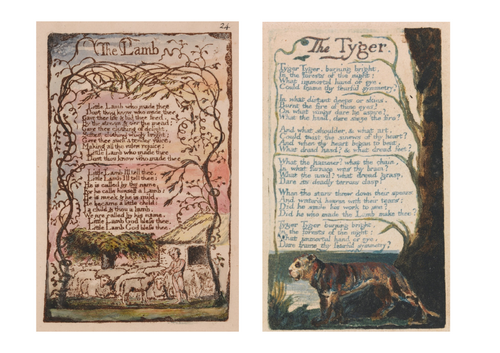 24
The Lamb
Little Lamb who made thee
Dost thou know who made thee
Gave thee life & bid thee feed.
By the stream & o'er the mead;
Gave thee clothing of delight,
Softest clothing wooly bright;
Gave thee such a tender voice,
Making all the vales rejoice:
Little Lamb who made thee
Dost thou know who made thee
Little Lamb I'll tell thee,
Little Lamb I'll tell thee;
He is called by thy name,
For he calls himself a Lamb:
He is meek & he is mild,
He became a little child:
I a child & thou a lamb,
We are called by his name.
Little Lamb God bless thee.
Little Lamb God bless thee.
The Tyger.
Tyger Tyger, burning bright,
In the forests of the night:
What immortal hand or eye,
Could frame thy fearful symmetry?
In what distant deeps or skies,
Burnt the fire of thine eyes?
On what wings dare he aspire?
What the hand, dare sieze the fire?
And what shoulder, & what art,
Could twist the sinews of thy heart?
And when thy heart began to beat,
What dread hand? & what dread feet?
What the hammer? what the chain,
In what furnace was thy brain?
What the anvil? what dread grasp,
Dare its deadly terrors clasp?
When the stars threw down their spears
And water'd heaven with their tears:
Did he smile his work to see?
Did he who made the Lamb make thee?
Tyger Tyger burning bright,
In the forests of the night:
What immortal hand or eye,
Dare frame thy fearful symmetry?